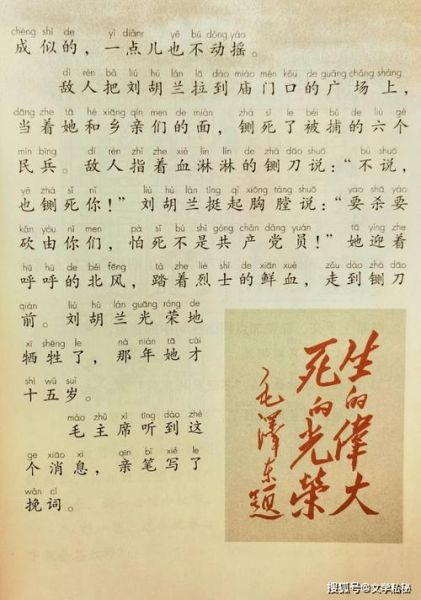 chéng shì de yì diǎnr yě bú dòng yáo
成似的，一点儿也不动摇。
dí rén bǎ liú hú lán lā dào miào mén kǒu de guǎng chǎng shàng
敌人把刘胡兰拉到庙门口的广场上，
dāng zhe tā hé xiāng qīn men de miàn zhá sǐ le bèi bǔ de liù gè
当着她和乡亲们的面，铡死了被捕的六个
mín bīng dí rén zhǐ zhe xiě lín lín de zhá dāo shuō bù shuō
民兵。敌人指着血淋淋的铡刀说：“不说，
yě zhá sǐ nǐ liú hú lán tǐng qǐ xiōng táng shuō yào shā yào
也铡死你！”刘胡兰挺起胸膛说：“要杀要
kǎn yóu nǐ men pà sǐ bú shì gòng chǎn dǎng yuán tā yíng zhe
砍由你们，怕死不是共产党员！”她迎着
hū hū de běi fēng tà zhe liè shì de xiān xuè zǒu dào zhá dāo
呼呼的北风，踏着烈士的鲜血，走到铡刀
qián liú hú lán guāng róng de
前。刘胡兰光荣地
xī shēng le nà nián tā cái
牺牲了，那年她才
shí wǔ suì
十五岁。
máo zhǔ xí tīng dào zhè
毛主席听到这
ge xiāo xi qīn bǐ xiě le
个消息，亲笔写了
wǎn cí
挽词。
生的偉大
死的光榮
毛澤东题
搜狐号@文学私秘